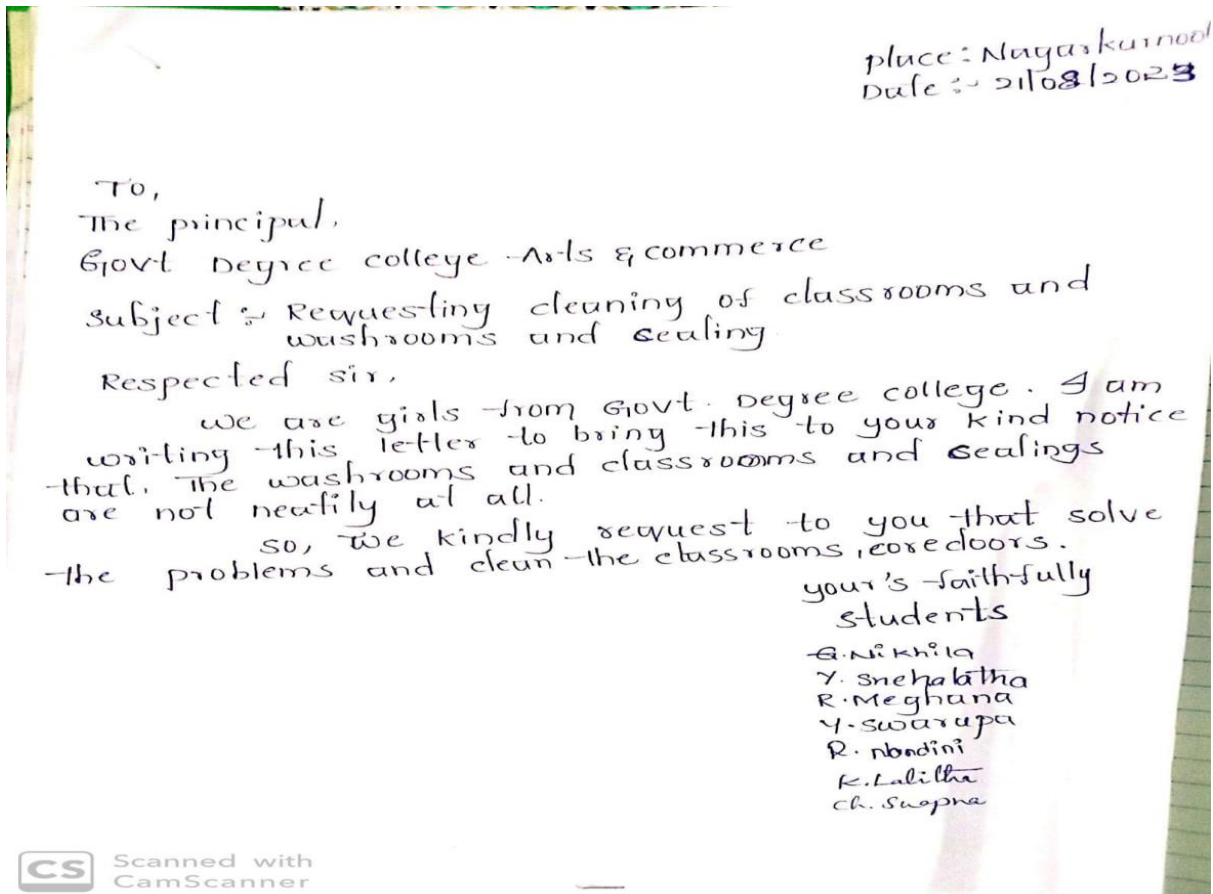 place: Nagarkurnool
Date :- 21/08/2023
To,
The principal,
Govt Degree college Arts & commerce
Subject :- Requesting cleaning of classrooms and
washrooms and sealing
Respected sir,
we are girls from Govt. Degree college. I am
writing this letter to bring this to your kind notice
that. The washrooms and classrooms and sealings
are not neatily at all.
so, we kindly request to you that solve
the problems and clean the classrooms, coredoors.
your's faithfully
students
G.Nikhila
Y. Snehalatha
R.Meghana
Y.Swarupa
R. Nandini
K.Lalitha
Ch. Swapna
CS Scanned with
CamScanner